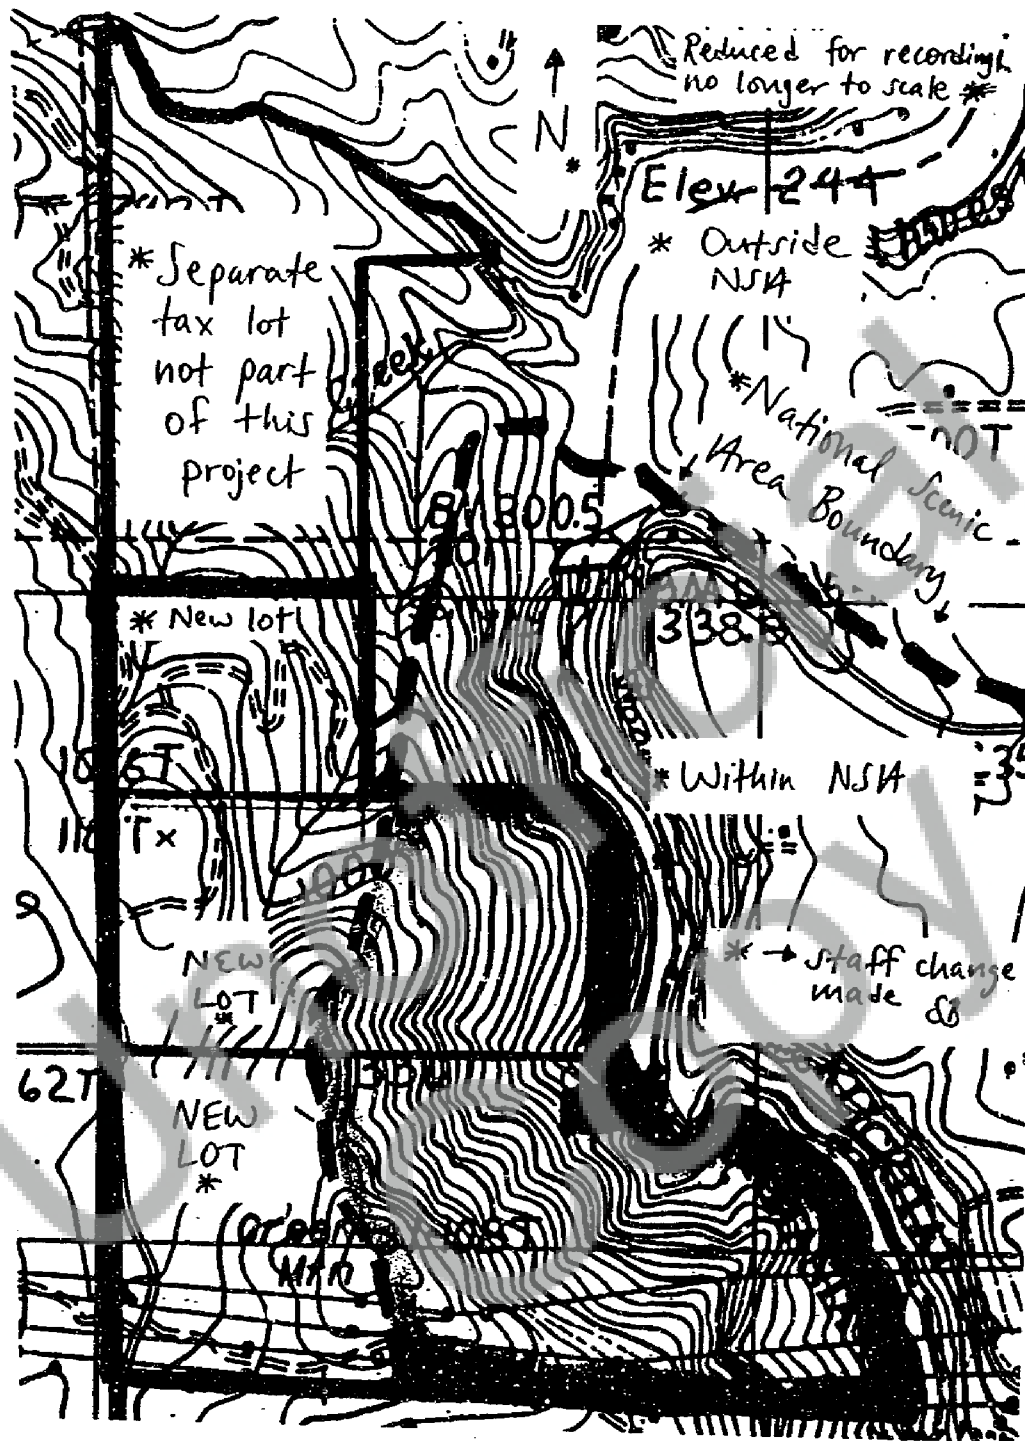 Reduced for recording
no longer to scale *
N
*
Elev 244
* Outside
NSA
* Separate
tax lot
not part
of this
project
Creek
* National Scenic
Area Boundary
BM 3005
338.8
* New lot
* Within NSA
NEW
LOT
*
* → staff change
made
62T
NEW
LOT
*
Green
Mtn
1087T
Unofficial
Copy